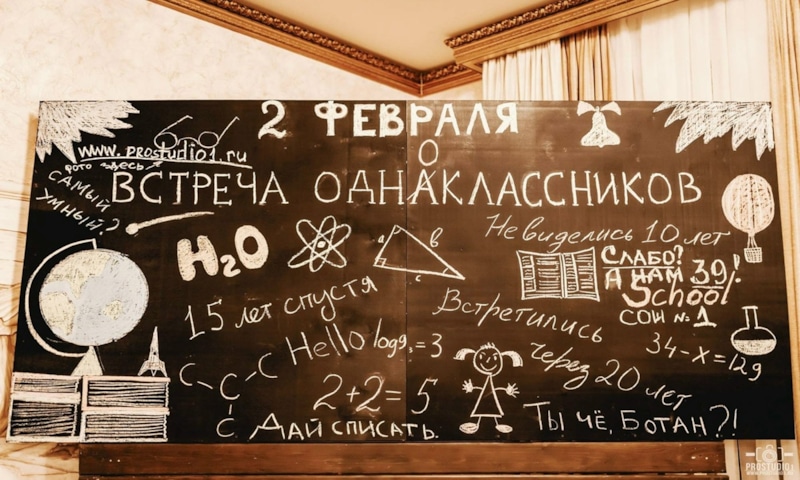 2 ФЕВРАЛЯ
www.prostudio1.ru
ФОТО ЗДЕСЬ
О
ВСТРЕЧА ОДНАКЛАССНИКОВ
САМЫЙ
УМНЫЙ?
H2O
a
b
c
Не виделись 10 лет
СЛАБО?
А НАМ 39!
School
СОШ №1
15 лет спустя
Встретились
через 20 лет
Hello
log9,=3
34-x=129
C C C
C
2+2=5
ДАЙ СПИСАТЬ.
ТЫ ЧЁ, БОТАН?!
PROSTUDIO1